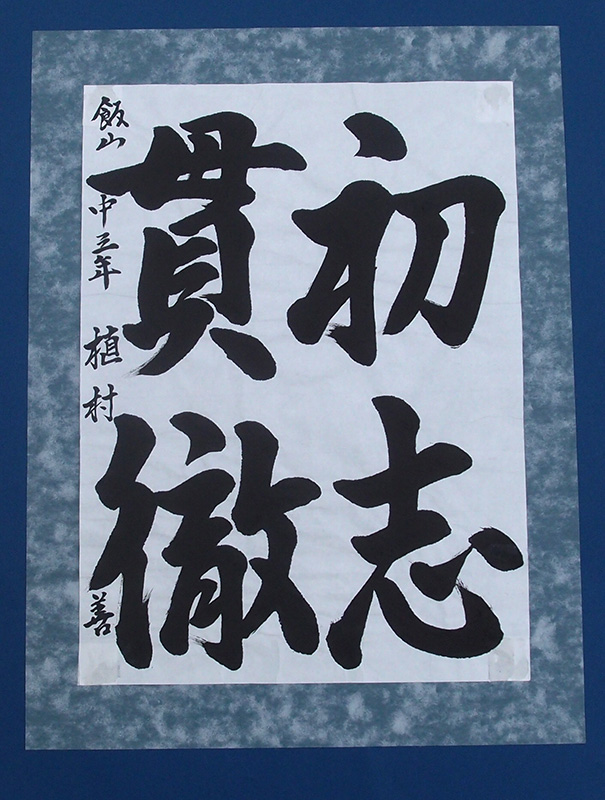 初志
貫徹
飯山中三年 植村 善